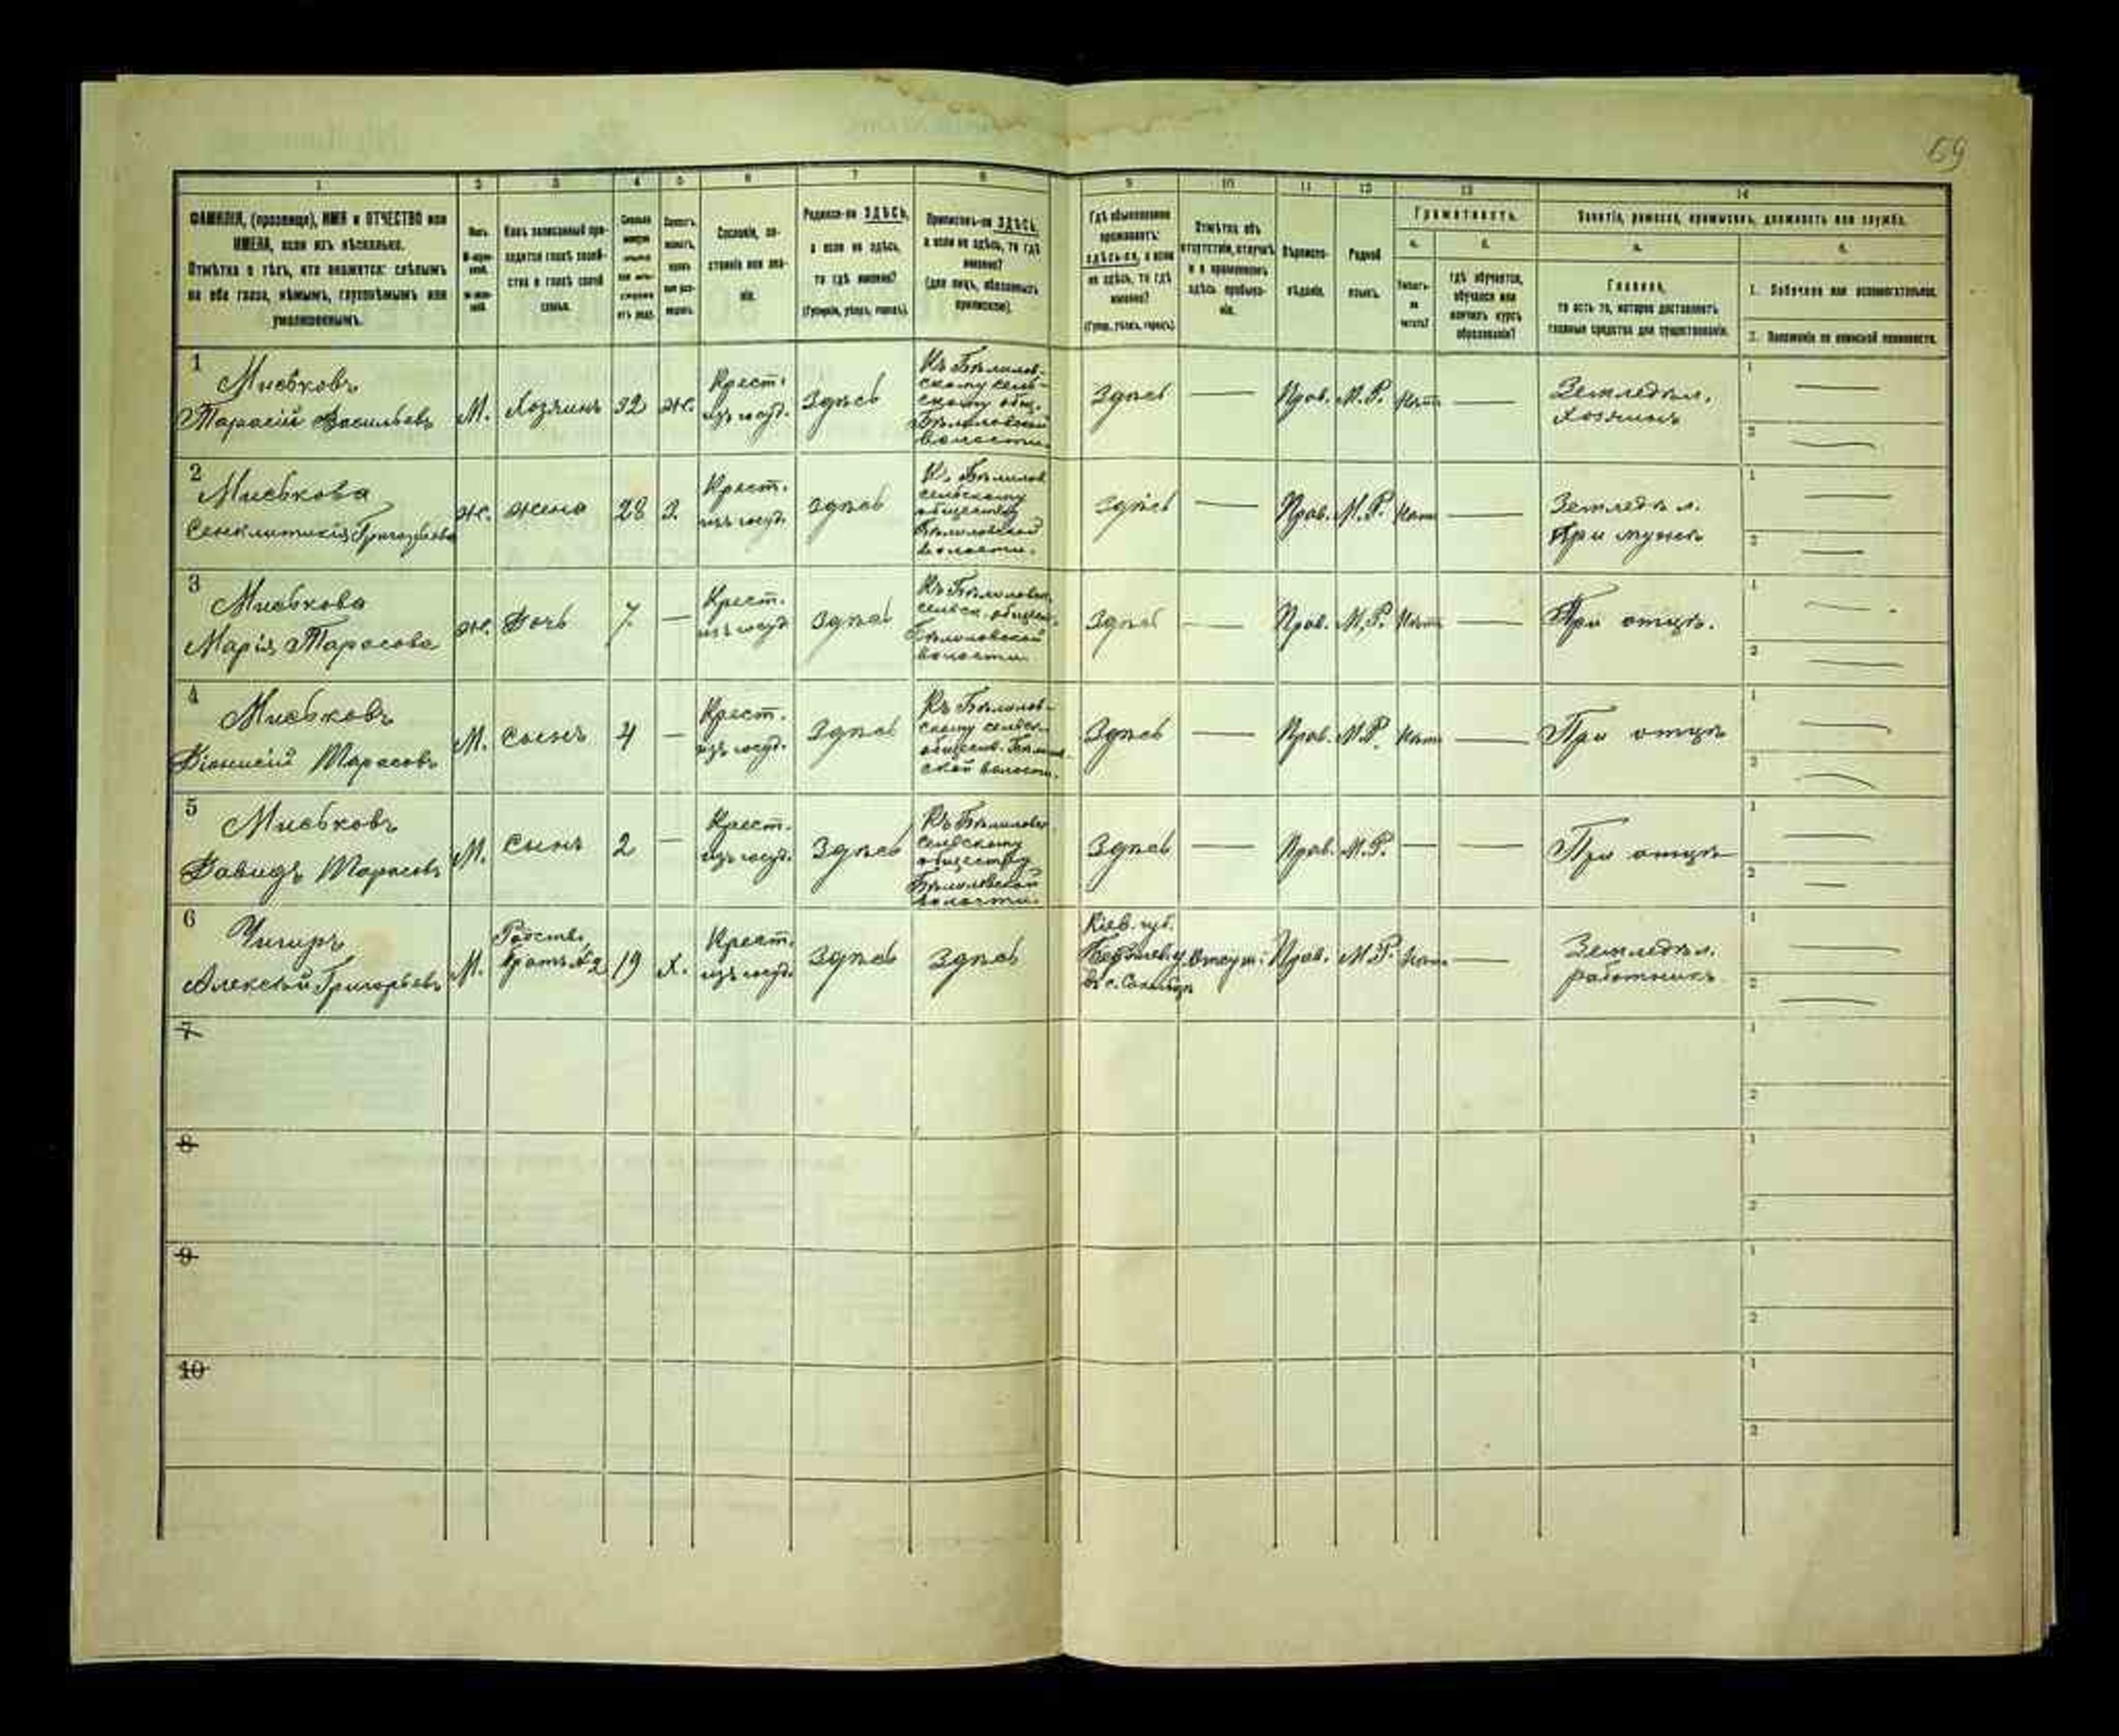 69
1 2 3 4 5 6 7 8 9 10 11 12 13 14
ФАМИЛІЯ, (прозвище), ИМЯ и ОТЧЕСТВО или
ИМЕНА, если ихъ нѣсколько.
Отмѣтка о тѣхъ, кто окажется: слѣпымъ
на оба глаза, нѣмымъ, глухонѣмымъ или
умалишеннымъ.
Полъ.
Какъ записанный при-
ходится главѣ хозяй-
ства и главѣ своей
семьи.
Сословіе, со-
стояніе или зва-
ніе.
Родился-ли ЗДѢСЬ,
а если не здѣсь,
то гдѣ именно?
(Губернія, уѣздъ, городъ).
Приписанъ-ли ЗДѢСЬ,
а если не здѣсь, то гдѣ
именно?
(для лицъ, обязанныхъ
припискою).
Гдѣ обыкновенно
проживаетъ:
здѣсь-ли, а если
не здѣсь, то гдѣ
именно?
(Губер., уѣздъ, городъ).
Отмѣтка объ
отсутствіи, отлучкѣ
и о временномъ
здѣсь пребыва-
ніи.
Вѣроиспо-
вѣданіе.
Родной
языкъ.
Грамотность.
а. б.
Умѣетъ-
ли
читать?
гдѣ обучается,
обучался или
кончилъ курсъ
образованія?
Занятіе, ремесло, промыселъ, должность или служба.
а. б.
Главное,
то есть то, которое доставляетъ
главныя средства для существованія.
1. Побочное или вспомогательное.
2. Положеніе по воинской повинности.
1
Миськовъ
Тарасій Васильевъ
М.
Хозяинъ
32
ж.
Крест.
изъ госуд.
Здѣсь
Къ Бѣлилов-
скому сель-
скому общ.
Бѣлиловской
волости
Здѣсь
—
Прав.
М.Р.
Нѣтъ
—
Земледѣл.
Хозяинъ
1 —
2 —
2
Миськова
Сенклитикія Григорьева
ж.
жена
28
З.
Крест.
изъ госуд.
Здѣсь
Къ Бѣлилов
сельскому
обществу
Бѣлиловской
волости.
Здѣсь
—
Прав.
М.Р.
Нѣтъ
—
Земледѣл.
При мужѣ
1 —
2 —
3
Миськова
Марія Тарасова
ж.
Дочь
7
—
Крест.
изъ госуд.
Здѣсь
Къ Бѣлиловск.
сельск. общест.
Бѣлиловской
волости.
Здѣсь
—
Прав.
М.Р.
Нѣтъ
—
При отцѣ.
1 —
2 —
4
Миськовъ
Діонисій Тарасовъ
М.
Сынъ
4
—
Крест.
изъ госуд.
Здѣсь
Къ Бѣлилов-
скому сельск.
обществ. Бѣлилов
ской волости.
Здѣсь
—
Прав.
М.Р.
Нѣтъ
—
При отцѣ
1 —
2 —
5
Миськовъ
Давидъ Тарасовъ
М.
Сынъ
2
—
Крест.
изъ госуд.
Здѣсь
Къ Бѣлиловск.
сельскому
обществу
Бѣлиловской
волости.
Здѣсь
—
Прав.
М.Р.
—
—
При отцѣ
1 —
2 —
6
Чигиръ
Алексѣй Григорьевъ
М.
Родств.
братъ №2
19
Х.
Крест.
изъ госуд.
Здѣсь
Здѣсь
Кіев. губ.
Бердичев. у.
Отлуч.
Прав.
М.Р.
Нѣтъ
—
Земледѣл.
работникъ
1 —
2 —
7
1
2
8
1
2
9
1
2
10
1
2